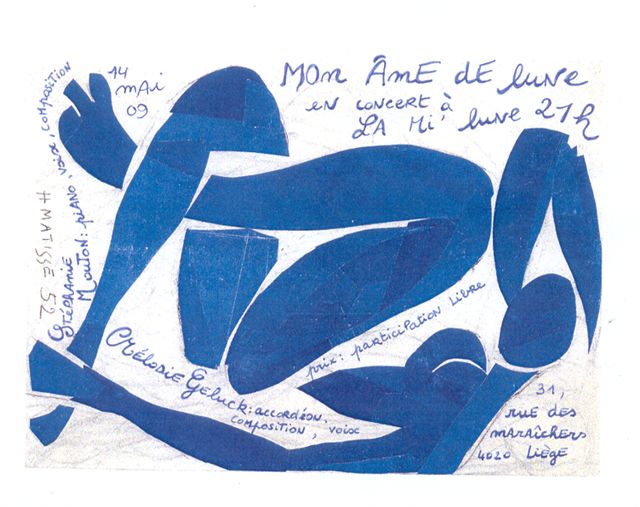 14
mAi
09
Mon ÂmE dE lune
en concert à
LA Mi' lune 21h
Stéphanie
Mouton: piAno, voix, composition
H MATISSE 52
Mélodie Geluck: accordéon,
composition, voix
prix: participation Libre
31,
rue des
maraîchers
4020 Liège